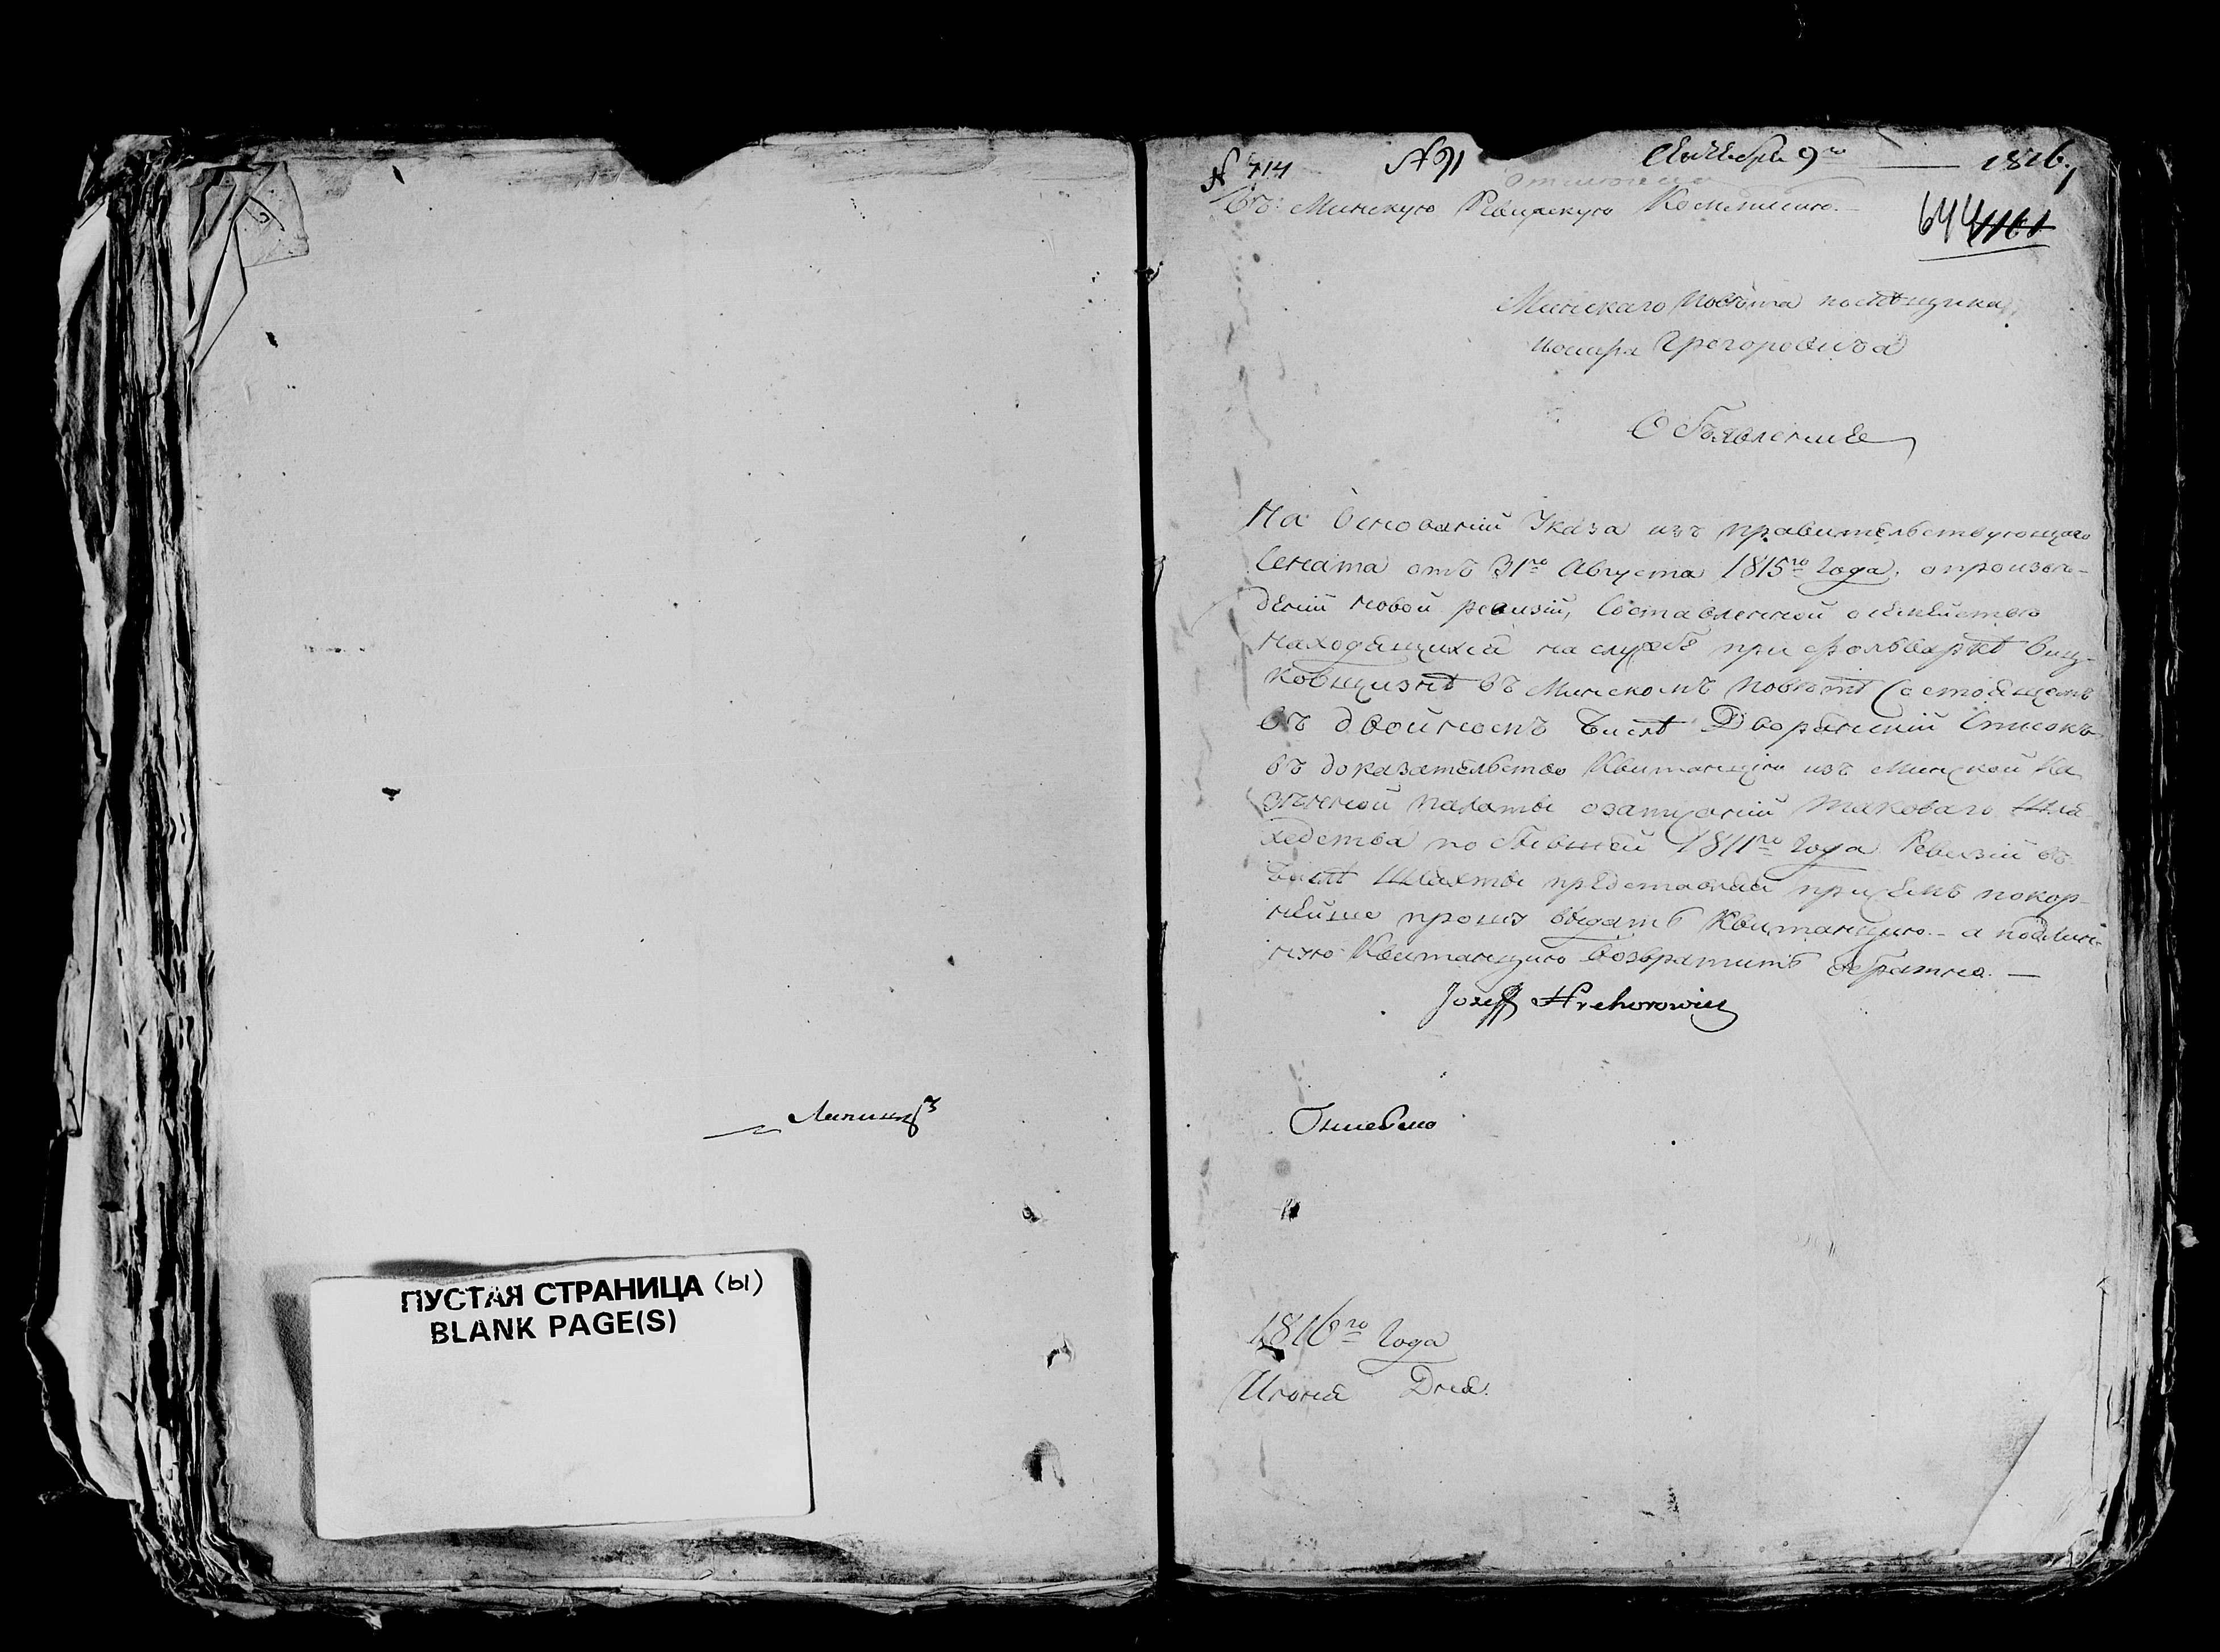 ПУСТАЯ СТРАНИЦА (ы)
BLANK PAGE(S)
№ 714 № 91 Сентебра 9го 1816
Въ Минскую Ревизскую Коммисию.
644 1161
Минскаго Повѣта помѣщика
Иосифа Грегоровича
Объявление
На Основаній Указа изъ правительствующаго
Сената отъ 31го Августа 1815го Года, о произве-
деній новой ревизіи, Составленной о
находящихся на службѣ при фольваркѣ
въ Минскомъ Повѣтѣ Состоящемъ
въ двойномъ числѣ Дворянский Списокъ
въ доказательство Квитанцию изъ Минской Ка
зенной палаты о таковаго Шля
хедства по бывшей 1811го Года Ревизій въ
числѣ Шляхты представляя при семъ покор-
нейше прошу выдать Квитанцию - а подлин-
ную Квитанцию Возвратить обратно. —
Jozeff Hrehorowicz
1816го Года
Июня Дня